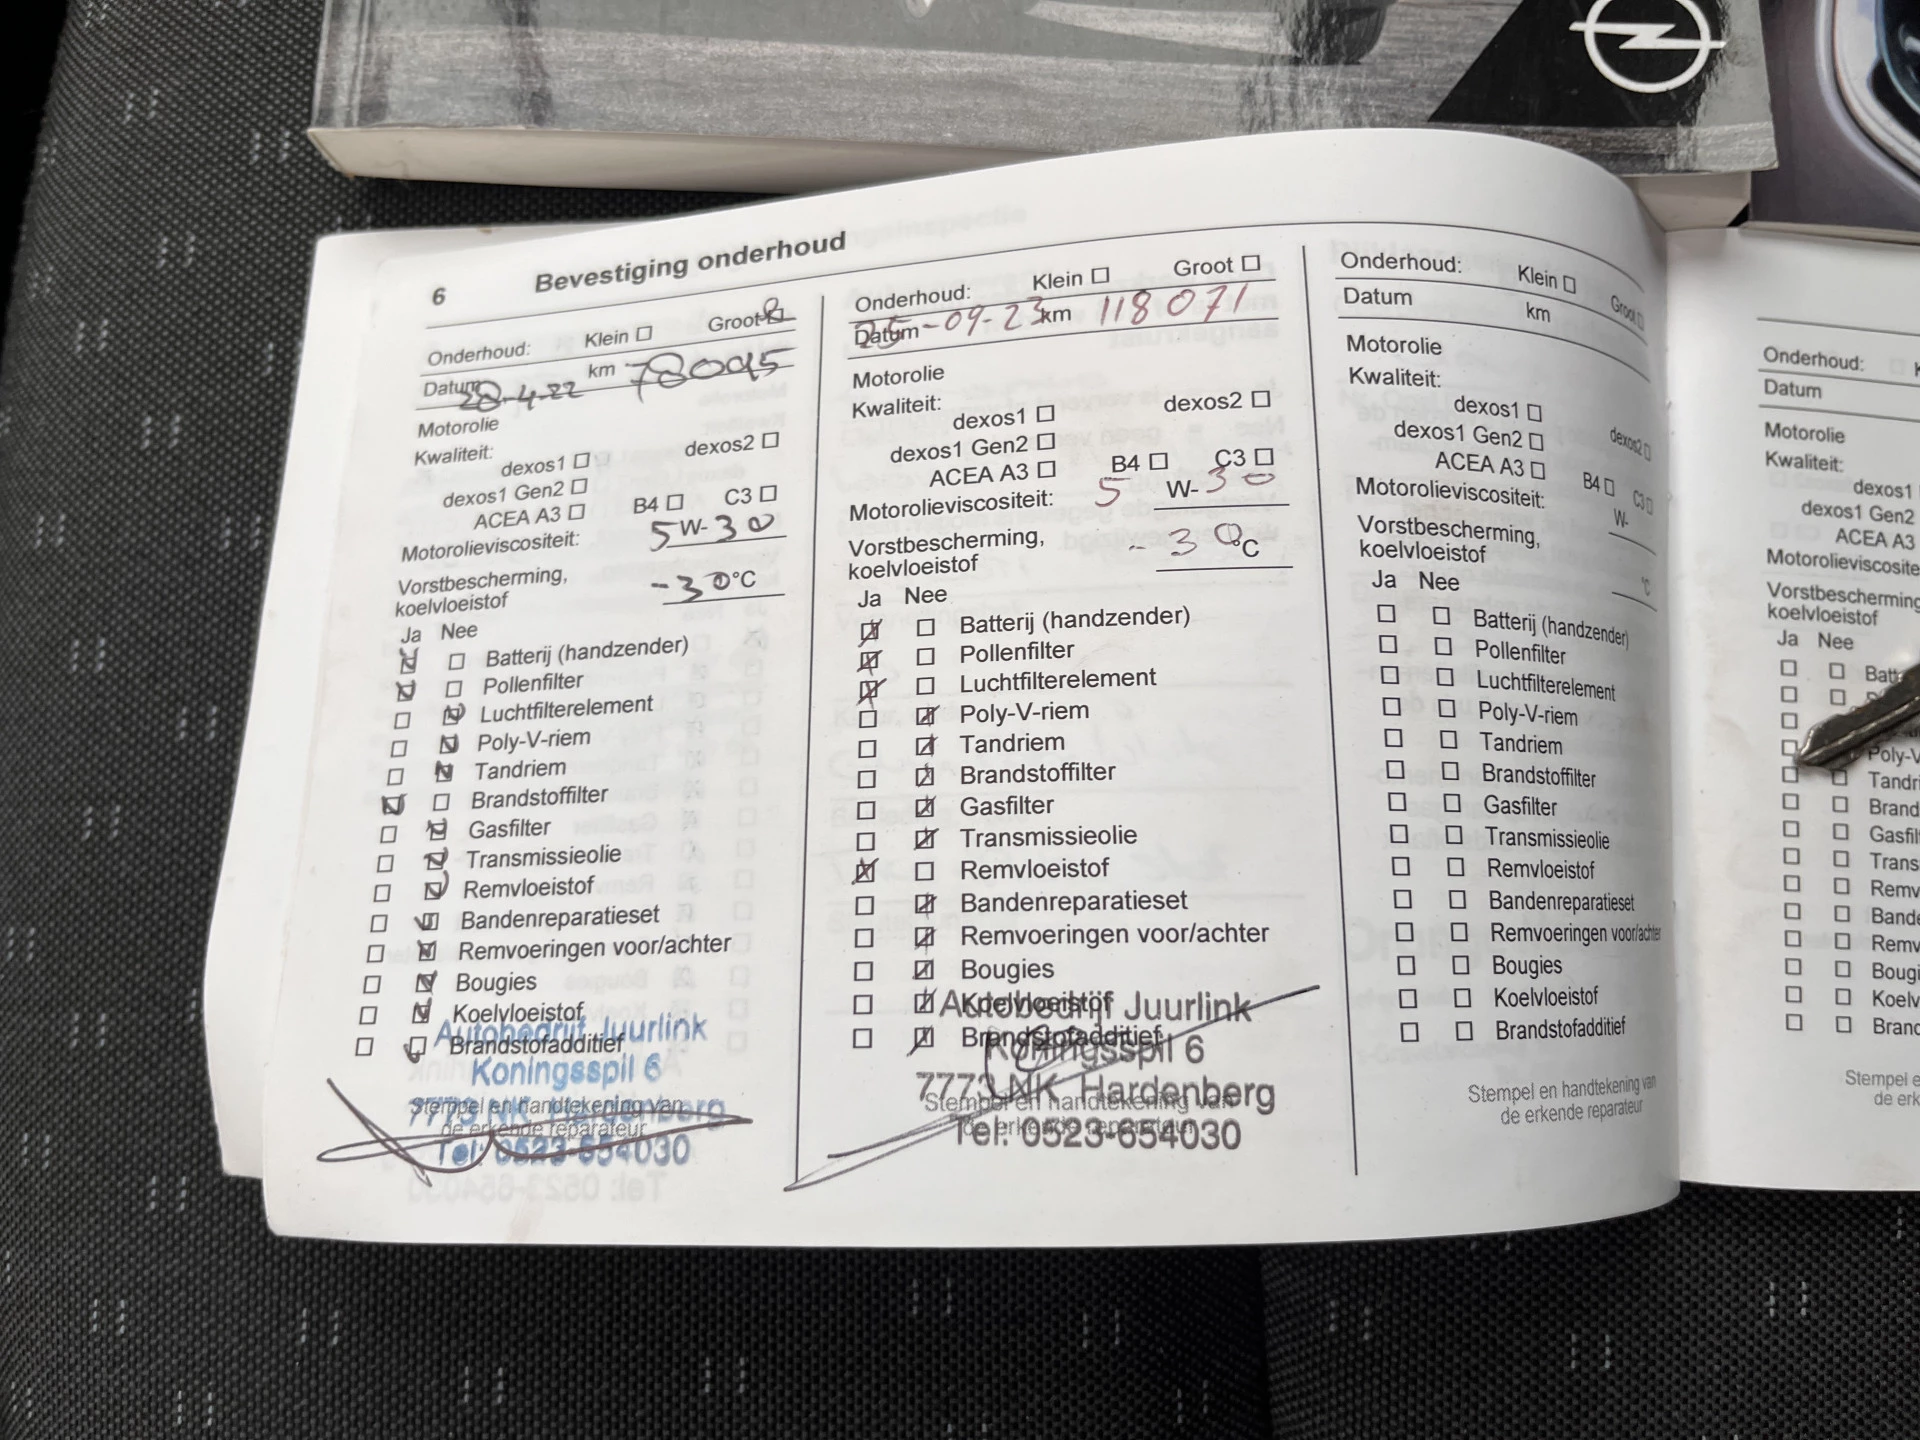 6 Bevestiging onderhoud
Onderhoud: Klein Groot
Datum 28-4-22 km 78095
Motorolie
Kwaliteit:
dexos1 dexos2
dexos1 Gen2
ACEA A3 B4 C3
Motorolieviscositeit: 5 W- 30
Vorstbescherming,
koelvloeistof -30°C
Ja Nee
Batterij (handzender)
Pollenfilter
Luchtfilterelement
Poly-V-riem
Tandriem
Brandstoffilter
Gasfilter
Transmissieolie
Remvloeistof
Bandenreparatieset
Remvoeringen voor/achter
Bougies
Koelvloeistof
Brandstofadditief
Autobedrijf Juurlink
Koningsspil 6
7773 NK Hardenberg
Tel: 0523-654030
Stempel en handtekening van
de erkende reparateur
Onderhoud: Klein Groot
Datum 25-09-23 km 118071
Motorolie
Kwaliteit:
dexos1 dexos2
dexos1 Gen2
ACEA A3 B4 C3
Motorolieviscositeit: 5 W- 30
Vorstbescherming,
koelvloeistof -30°C
Ja Nee
Batterij (handzender)
Pollenfilter
Luchtfilterelement
Poly-V-riem
Tandriem
Brandstoffilter
Gasfilter
Transmissieolie
Remvloeistof
Bandenreparatieset
Remvoeringen voor/achter
Bougies
Koelvloeistof
Brandstofadditief
Autobedrijf Juurlink
Koningsspil 6
7773 NK Hardenberg
Tel: 0523-654030
Stempel en handtekening van
de erkende reparateur
Onderhoud: Klein Groot
Datum km
Motorolie
Kwaliteit:
dexos1 dexos2
dexos1 Gen2
ACEA A3 B4 C3
Motorolieviscositeit: W-
Vorstbescherming,
koelvloeistof °C
Ja Nee
Batterij (handzender)
Pollenfilter
Luchtfilterelement
Poly-V-riem
Tandriem
Brandstoffilter
Gasfilter
Transmissieolie
Remvloeistof
Bandenreparatieset
Remvoeringen voor/achter
Bougies
Koelvloeistof
Brandstofadditief
Stempel en handtekening van
de erkende reparateur
Onderhoud: K
Datum
Motorolie
Kwaliteit:
dexos1
dexos1 Gen2
ACEA A3
Motorolieviscosite
Vorstbescherming
koelvloeistof
Ja Nee
Batt
Poly-V
Tandri
Brand
Gasfilt
Trans
Remv
Bande
Remv
Bougi
Koelv
Branc
Stempel e
de erk